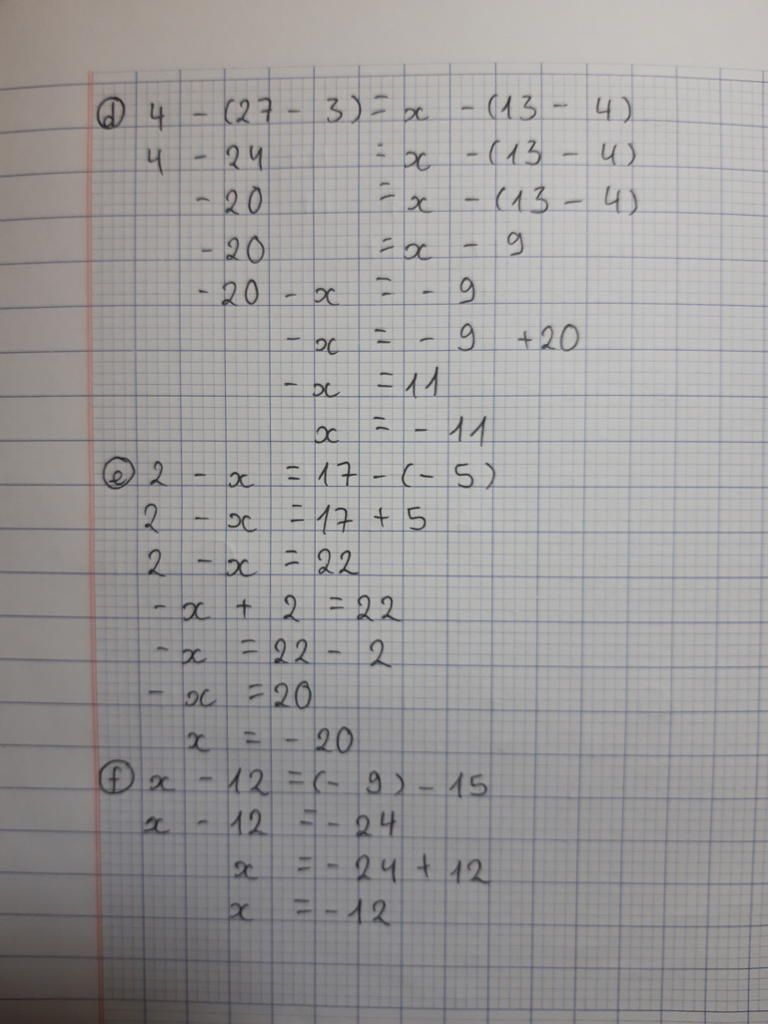 ⓓ 4 - (27 - 3) = x - (13 - 4)
4 - 24 = x - (13 - 4)
- 20 = x - (13 - 4)
- 20 = x - 9
- 20 - x = - 9
- x = - 9 + 20
- x = 11
x = - 11
ⓔ 2 - x = 17 - (- 5)
2 - x = 17 + 5
2 - x = 22
- x + 2 = 22
- x = 22 - 2
- x = 20
x = - 20
ⓕ x - 12 = (- 9) - 15
x - 12 = - 24
x = - 24 + 12
x = - 12